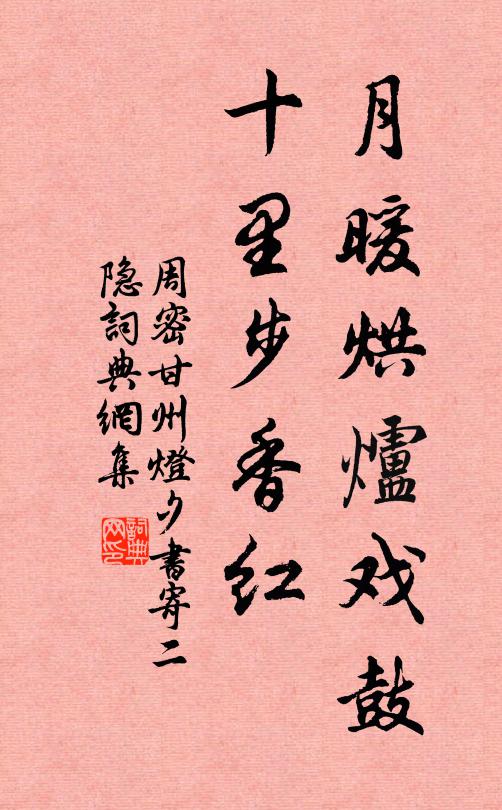 月暖烘爐戏鼓
十里步香红
周密甘州燈夕書寄二
隐詞典網集
詞典网印